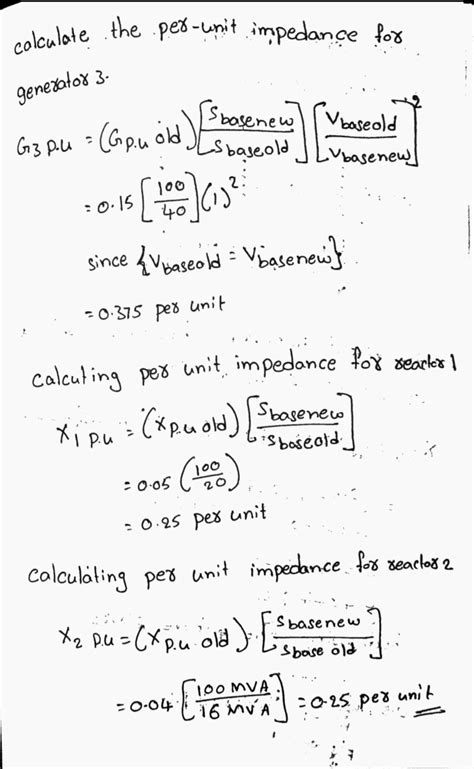 calculate the per-unit impedance for
generator 3.
G3 p.u = (Gp.u old) [Sbasenew / Sbaseold] [Vbaseold / Vbasenew]²
= 0.15 [100 / 40] (1)²
since {Vbaseold = Vbasenew}
= 0.375 per unit
Calcuting per unit impedance for reactor 1
X1 p.u = (Xp.u old) [Sbasenew / Sbaseold]
= 0.05 (100 / 20)
= 0.25 per unit
Calculating per unit impedance for reactor 2
X2 p.u = (Xp.u old) [Sbasenew / Sbase old]
= 0.04 [100 MVA / 16 MVA] = 0.25 per unit